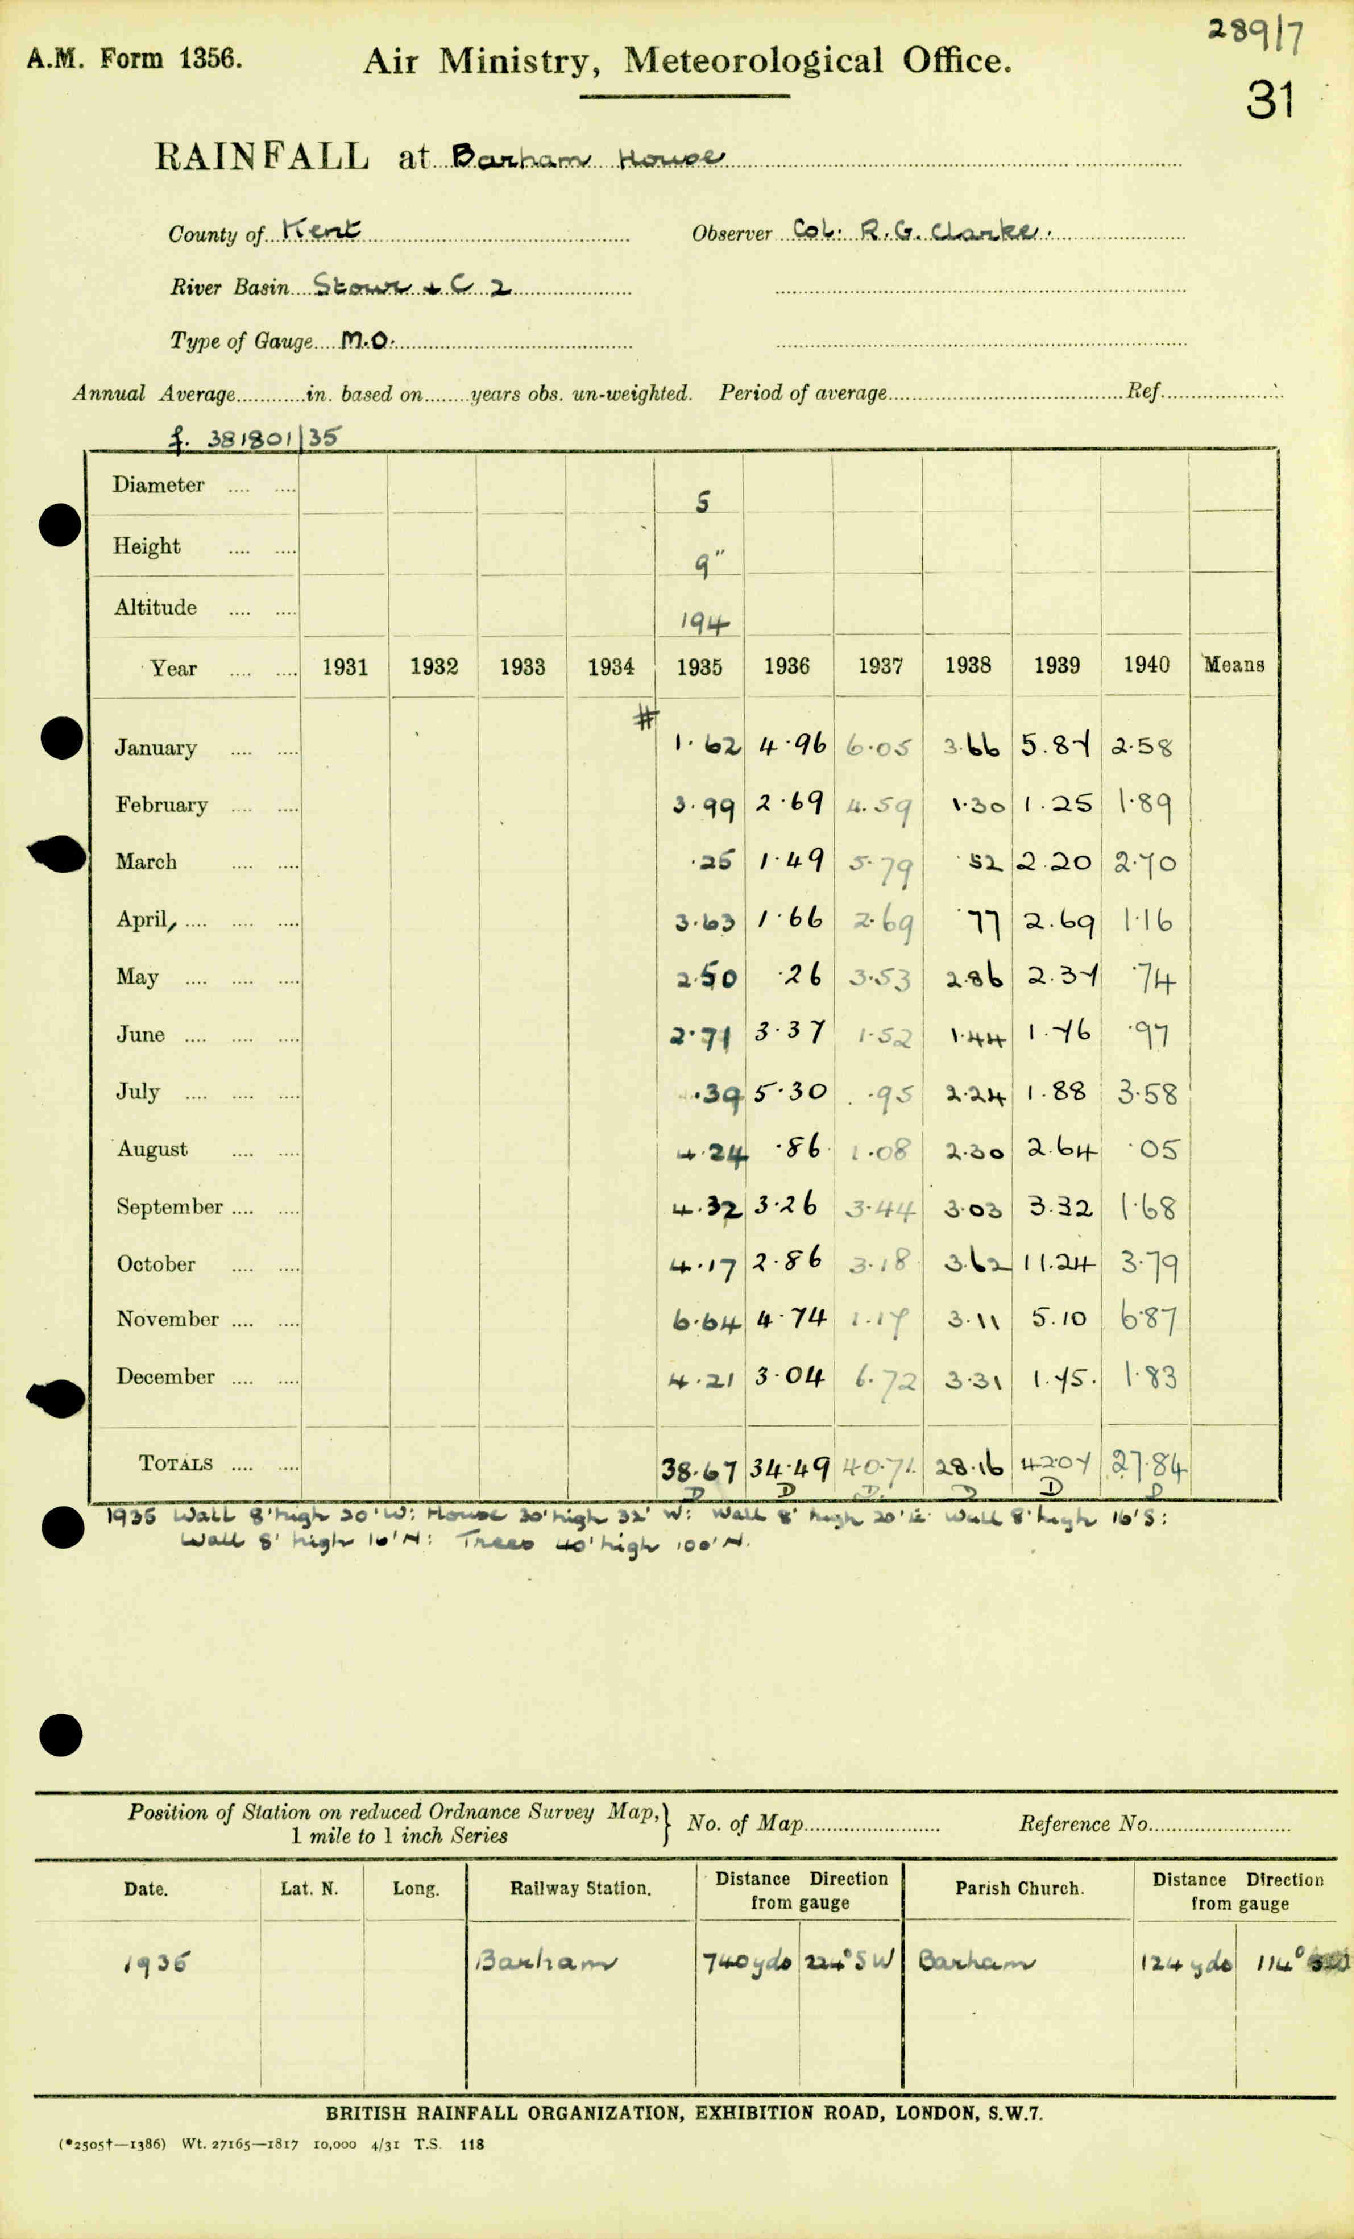 289/7
A.M. Form 1356. Air Ministry, Meteorological Office.
31
RAINFALL at Barham House
County of Kent Observer Col: R.G. Clarke.
River Basin Stour + C 2
Type of Gauge M.O.
Annual Average............in. based on........years obs. un-weighted. Period of average.................... Ref....................
f. 381801/35
Diameter .... .... 5
Height .... .... 9"
Altitude .... .... 194
Year .... .... 1931 1932 1933 1934 1935 1936 1937 1938 1939 1940 Means
#
January .... .... 1.62 4.96 6.05 3.66 5.87 2.58
February .... .... 3.99 2.69 4.59 1.30 1.25 1.89
March .... .... .25 1.49 5.79 .52 2.20 2.70
April, .... .... .... 3.63 1.66 2.69 .77 2.69 1.16
May .... .... .... 2.50 .26 3.53 2.86 2.37 .74
June .... .... .... 2.71 3.37 1.52 1.44 1.76 .97
July .... .... .... .39 5.30 .95 2.24 1.88 3.58
August .... .... 4.24 .86 1.08 2.30 2.64 .05
September .... .... 4.32 3.26 3.44 3.03 3.32 1.68
October .... .... 4.17 2.86 3.18 3.62 11.24 3.79
November .... .... 6.64 4.74 1.17 3.11 5.10 6.87
December .... .... 4.21 3.04 6.72 3.31 1.75. 1.83
TOTALS .... .... 38.67 34.49 40.71 28.16 42.07 27.84
D D D D D D
1935 Wall 8' high 20' W: House 30' high 32' W: Wall 8' high 20' E: Wall 8' high 16' S:
Wall 8' high 16' N: Trees 40' high 100' N.
Position of Station on reduced Ordnance Survey Map, } No. of Map.................... Reference No....................
1 mile to 1 inch Series
Date. Lat. N. Long. Railway Station. Distance Direction Parish Church. Distance Direction
from gauge from gauge
1936 Barham 740 yds 224° SW Barham 124 yds 114°
BRITISH RAINFALL ORGANIZATION, EXHIBITION ROAD, LONDON, S.W.7.
(*2505†—1386) Wt. 27165—1817 10,000 4/31 T.S. 118